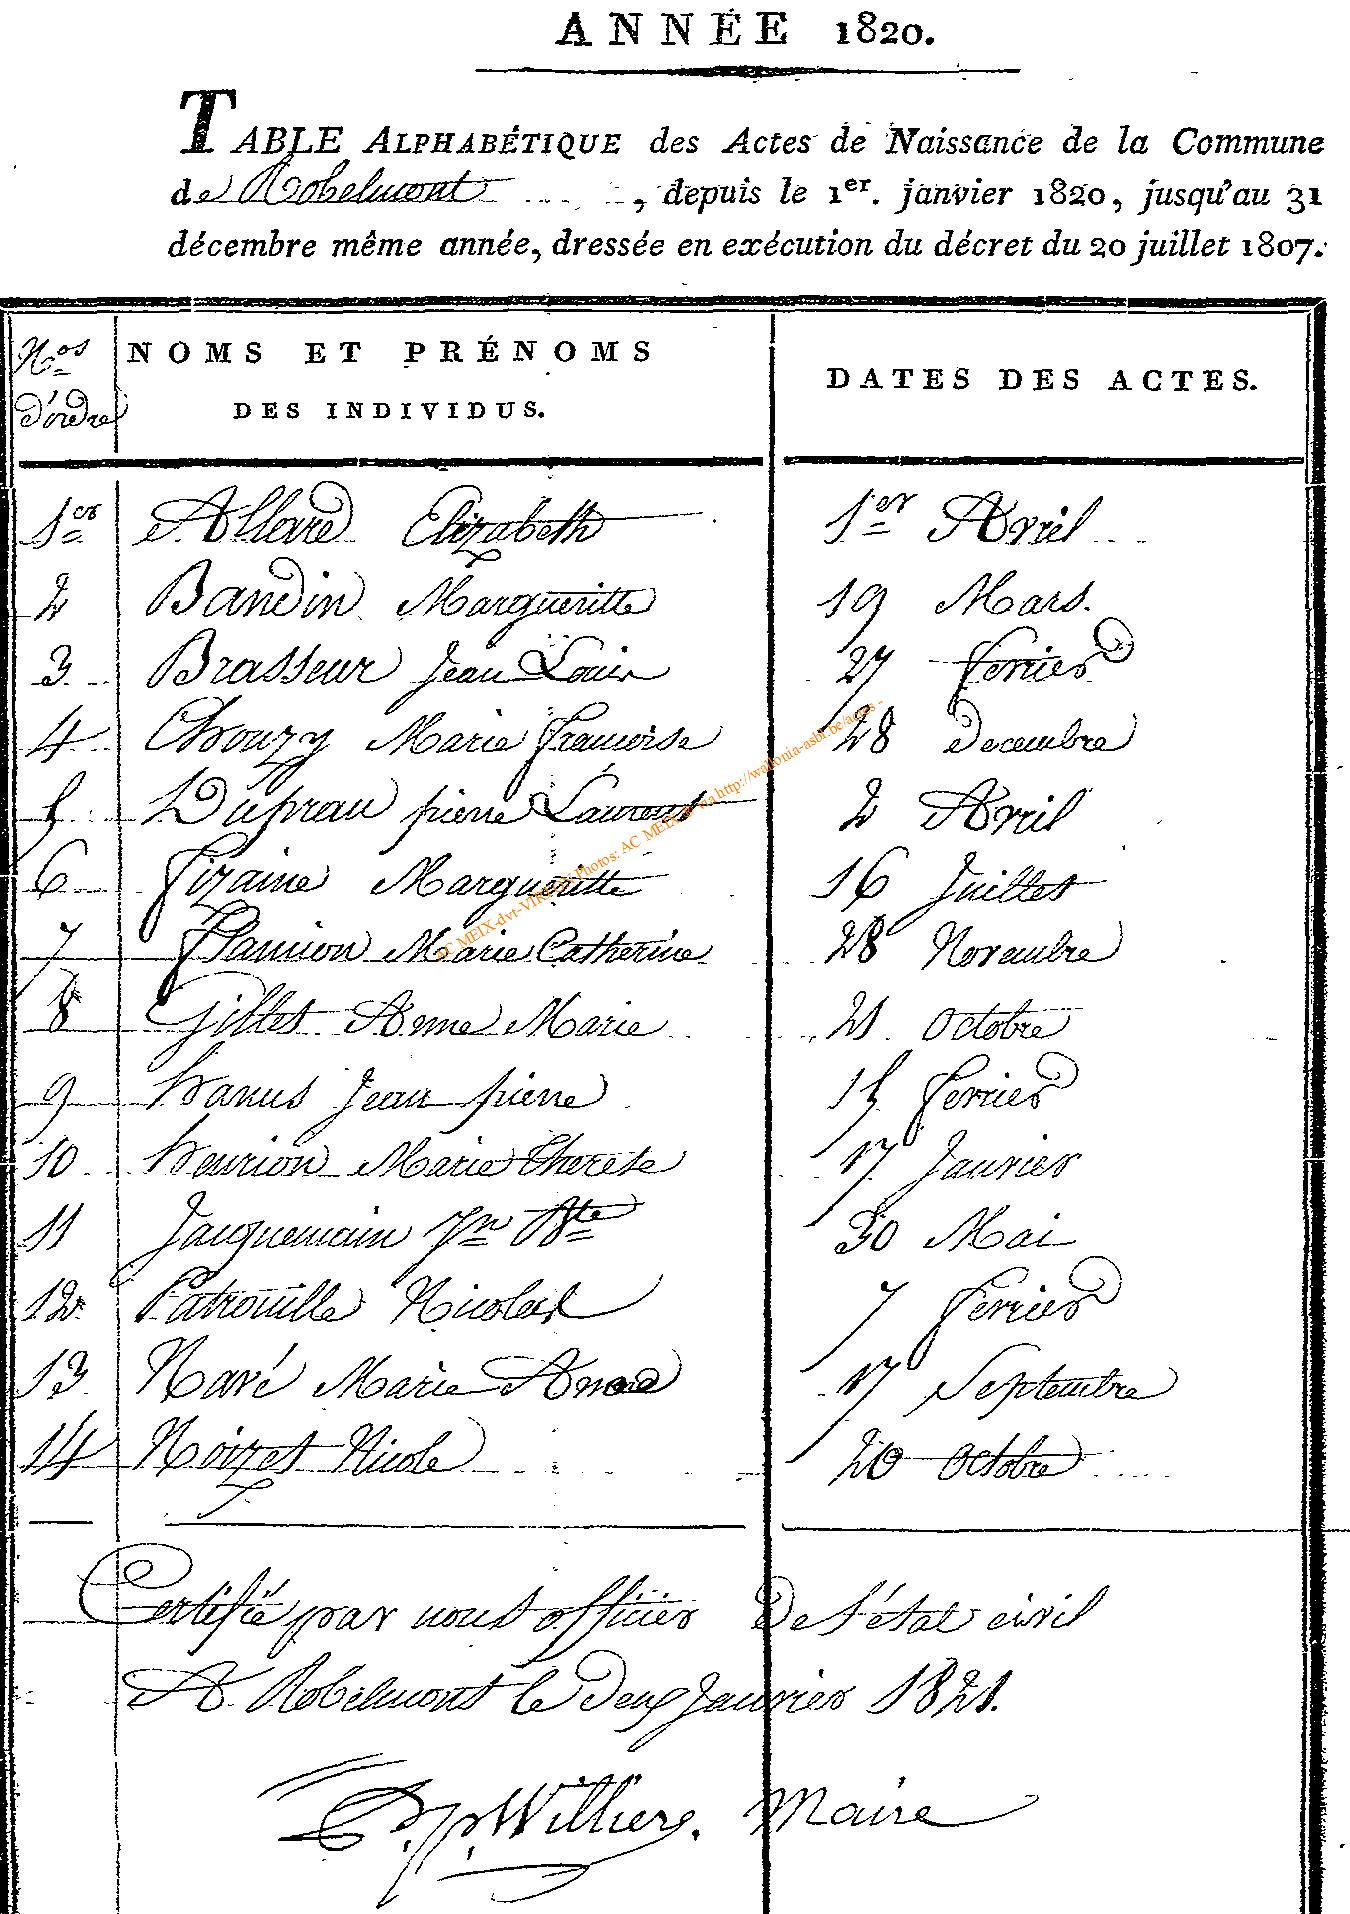 ANNÉE 1820.
TABLE ALPHABÉTIQUE des Actes de Naissance de la Commune
de Robelmont, depuis le 1er. janvier 1820, jusqu'au 31
décembre même année, dressée en exécution du décret du 20 juillet 1807.
Nos d'ordre NOMS ET PRÉNOMS DES INDIVIDUS. DATES DES ACTES.
1er Allard Elizabeth 1er Avril
2 Baudin Margueritte 19 Mars.
3 Brasseur Jean Louis 27 fevrier
4 Chouzy Marie françoise 28 decembre
5 Dupreau pierre Laurent 2 Avril
6 fizaine Margueritte 16 Juillet
7 flamion Marie Catherine 28 Novembre
8 Gillet Anne Marie 21 octobre
9 hanus Jean pierre 15 fevrier
10 henrion Marie therese 17 Janvier
11 Jacquemain Jn Bte 30 Mai
12 Latrouille Nicolas 7 fevrier
13 Navé Marie Anne 17 Septembre
14 Noizet Nicole 20 octobre
Certifié par nous officier de l'état civil
A Robelmont le deux Janvier 1821.
Willieme. Maire
AC MEIX-dvt-VIRTON Photos: AC MEIX via http://wallonia-asbl.be/actes-